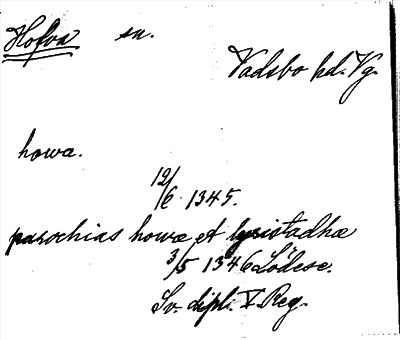 Hofva sn.
Vadsbo hd. Vg.
howa.
12/6 1345.
parochias howæ et lyristadhæ
3/5 1346 Lödese.
Sv. dipl. V. Reg.